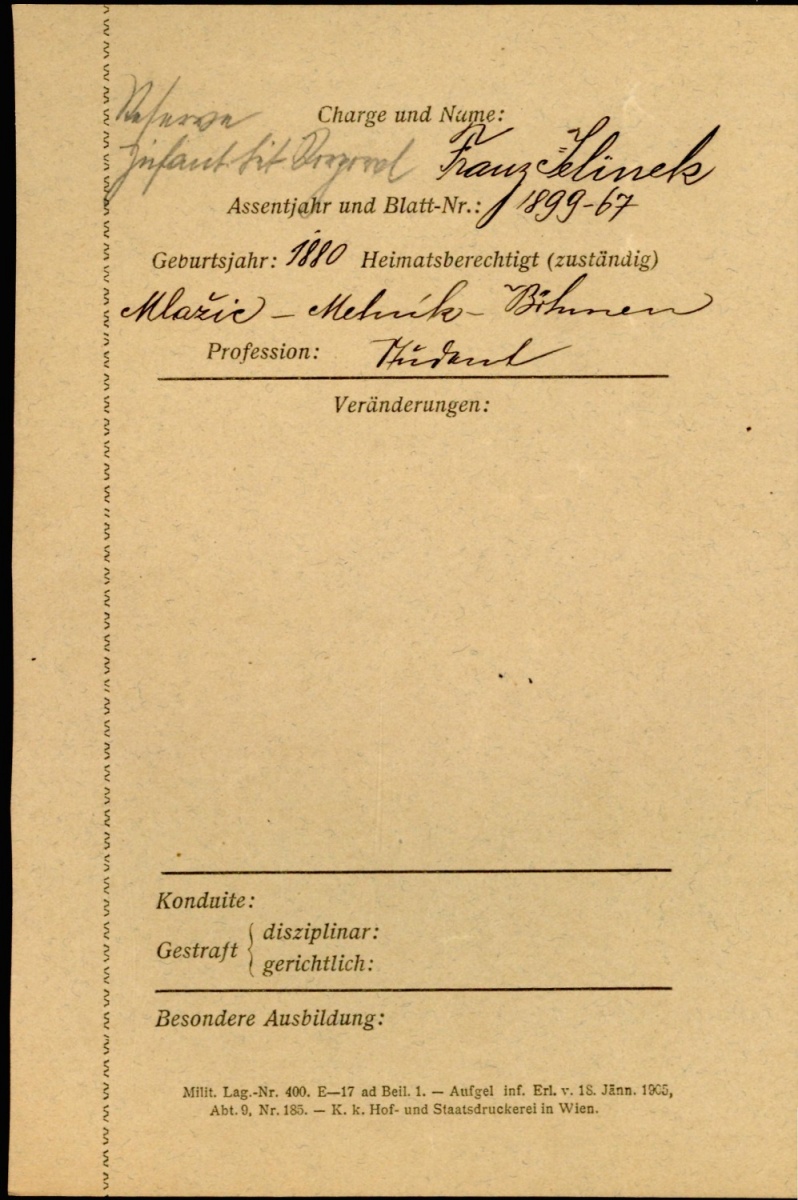 Reserve
Charge und Name:
Infant. tit Korporal Franz Jelinek
Assentjahr und Blatt-Nr.: 1899-67
Geburtsjahr: 1880 Heimatsberechtigt (zuständig)
Mlažic – Melnik – Böhmen
Profession: Student
Veränderungen:
Konduite:
Gestraft { disziplinar:
gerichtlich:
Besondere Ausbildung:
Milit. Lag.-Nr. 400. E—17 ad Beil. 1. — Aufgel inf. Erl. v. 18. Jänn. 1905,
Abt. 9, Nr. 185. — K. k. Hof- und Staatsdruckerei in Wien.